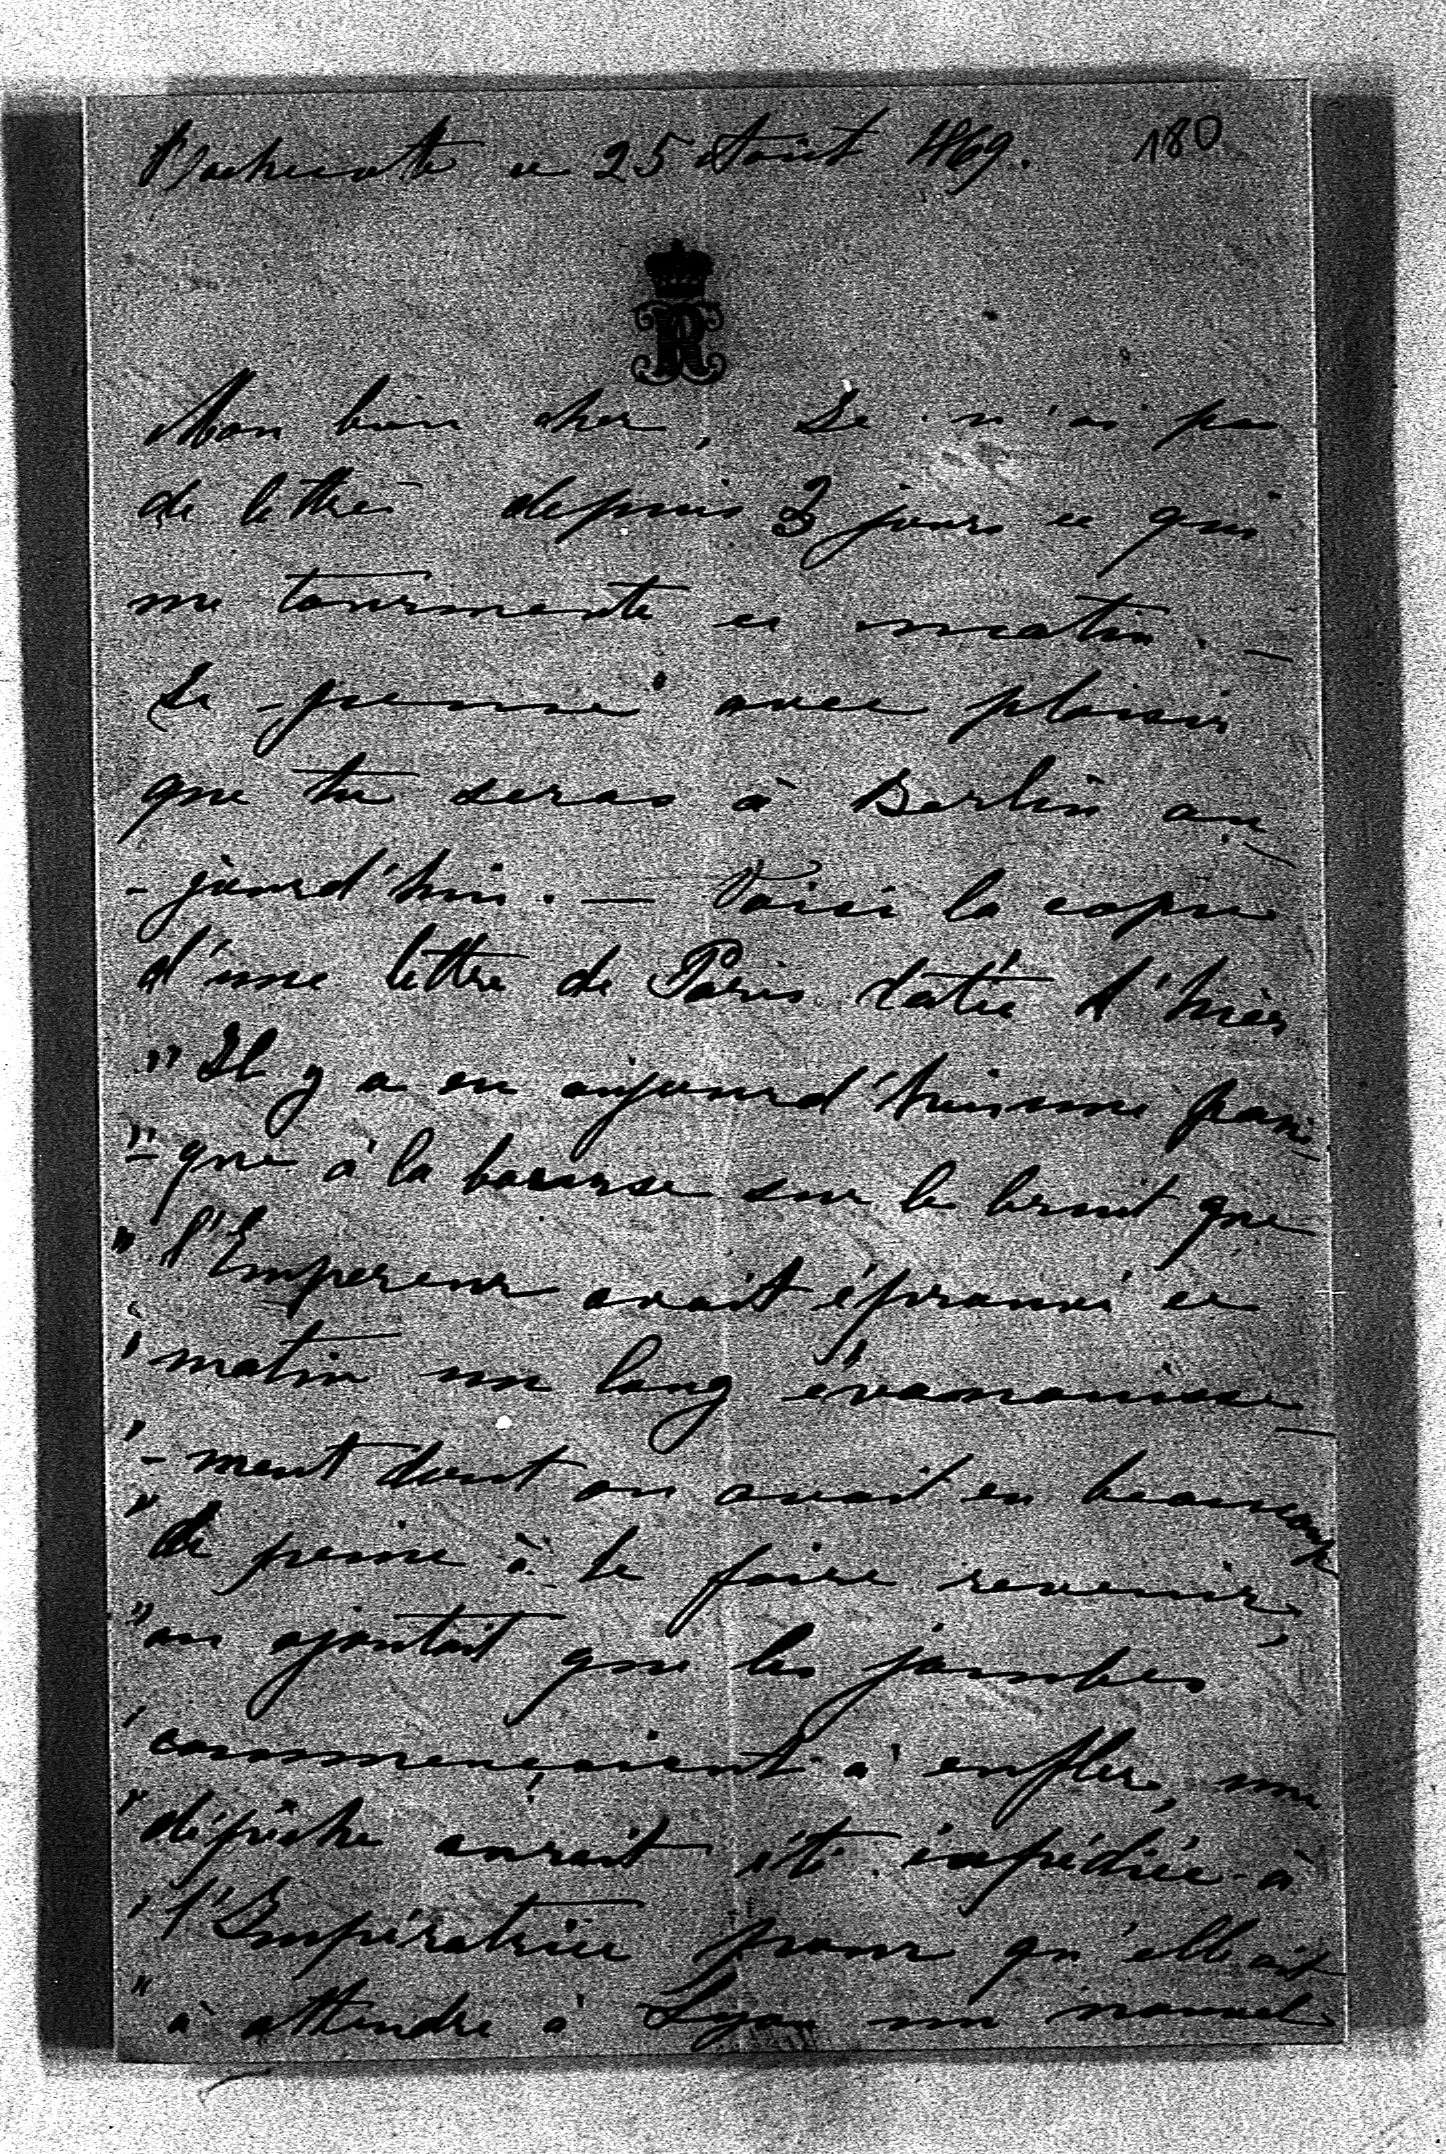 ce 25 Août 1869. 180
R
Mon bien cher, Je n'ai pas
de lettre depuis 3 jours ce qui
me tourmente ce matin. —
Je avec plaisir
que tu seras à Berlin au
- jourd'hui. — Voici la copie
d'une lettre de Paris datée d'hier
" Il y a eu aujourd'hui une pani
"- que à la bourse sur le bruit que
" l'Empereur avait éprouvé ce
" matin un long évanouisse-
" - ment dont on avait eu beaucoup
" de peine à le faire revenir,
" on ajoutait que les jambes
" commençaient à enfler, une
" dépêche aurait été expédiée à
" l'Impératrice pour qu'elle ait
" à attendre à Lyon un nouvel